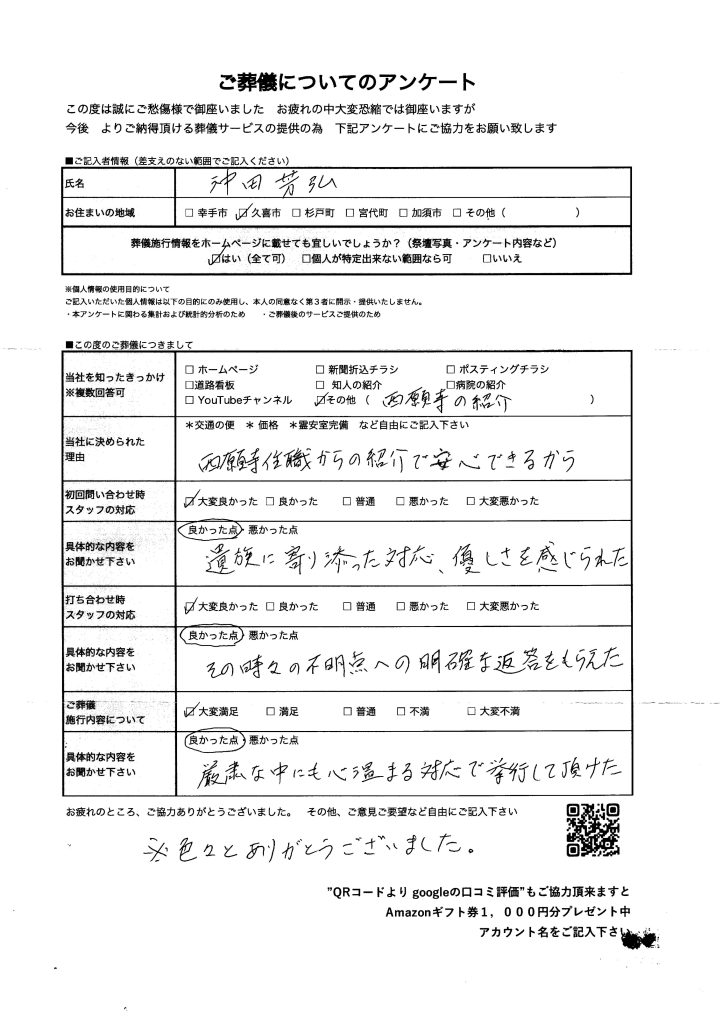 ご葬儀についてのアンケート
この度は誠にご愁傷様で御座いました　お疲れの中大変恐縮では御座いますが
今後　よりご納得頂ける葬儀サービスの提供の為　下記アンケートにご協力をお願い致します
■ご記入者情報（差支えのない範囲でご記入ください）
氏名　沖田芳弘
お住まいの地域　□ 幸手市　☑ 久喜市　□ 杉戸町　□ 宮代町　□ 加須市　□ その他（　　　　　　）
葬儀施行情報をホームページに載せても宜しいでしょうか？（祭壇写真・アンケート内容など）
☑はい（全て可）　□個人が特定出来ない範囲なら可　　□いいえ
※個人情報の使用目的について
ご記入いただいた個人情報は以下の目的にのみ使用し、本人の同意なく第３者に開示・提供いたしません。
・本アンケートに関わる集計および統計的分析のため　・ご葬儀後のサービスご提供のため
■この度のご葬儀につきまして
当社を知ったきっかけ
※複数回答可
□ ホームページ　□ 新聞折込チラシ　□ ポスティングチラシ
□道路看板　□ 知人の紹介　□病院の紹介
□ YouTubeチャンネル　☑その他（ 西願寺の紹介 ）
当社に決められた
理由
＊交通の便　＊ 価格　＊霊安室完備　など自由にご記入下さい
西願寺住職からの紹介で安心できるから
初回問い合わせ時
スタッフの対応
☑大変良かった　□ 良かった　□ 普通　□ 悪かった　□ 大変悪かった
具体的な内容を
お聞かせ下さい
良かった点・悪かった点
遺族に寄り添った対応、優しさを感じられた
打ち合わせ時
スタッフの対応
☑大変良かった　□ 良かった　□ 普通　□ 悪かった　□ 大変悪かった
具体的な内容を
お聞かせ下さい
良かった点・悪かった点
その時々の不明点への明確な返答をもらえた
ご葬儀
施行内容について
☑大変満足　□ 満足　□ 普通　□ 不満　□ 大変不満
具体的な内容を
お聞かせ下さい
良かった点・悪かった点
厳粛な中にも心温まる対応で挙行して頂けた
お疲れのところ、ご協力ありがとうございました。　その他、ご意見ご要望など自由にご記入下さい
※色々とありがとうございました。
”QRコードより googleの口コミ評価”もご協力頂来ますと
Amazonギフト券１，０００円分プレゼント中
アカウント名をご記入下さい